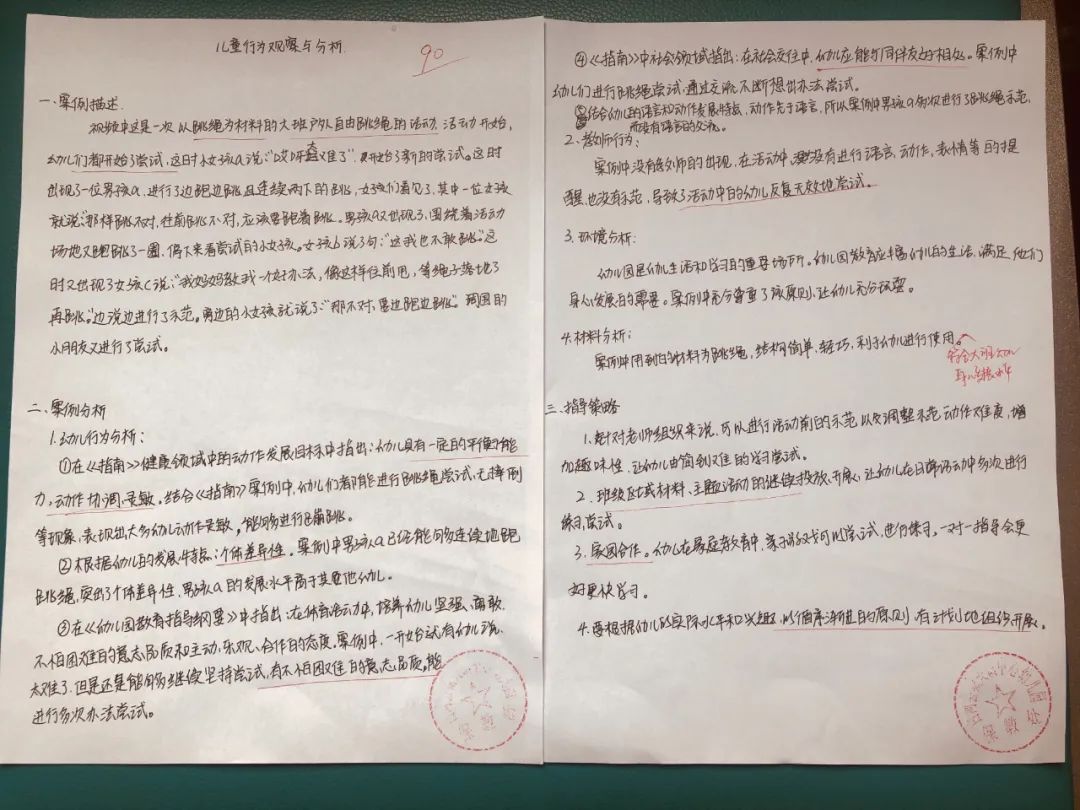 儿童行为观察与分析.
90
一、案例描述.
视频中这是一次以跳绳为材料的大班户外自由跳绳的活动.活动开始,
幼儿们都开始了尝试,这时女孩A说:"哎呀太难了".又开始了新的尝试。这时
出现了一位男孩a,进行了边跑边跳且连续两下的跳,女孩们看见了,其中一位女孩
就说:那样跳不对,往前跳不对,应该要跑着跳。男孩a又出现了,围绕着活动
场地又跑跳了一圈,停下来看尝试的小女孩。女孩b说了句:"这我也不敢跳"。这
时又出现了女孩c说:"我妈妈教我一个好办法,像这样往前甩,等绳子落地了
再跳。"边说边进行了示范。旁边的小女孩就说了:"那不对,要边跑边跳"。周围的
小朋友又进行了尝试。
二、案例分析
1.幼儿行为分析:
①在《指南》健康领域中的动作发展目标中指出:幼儿具有一定的平衡能
力,动作协调、灵敏。结合《指南》案例中,幼儿们都能进行跳绳尝试,无摔倒
等现象,表现出大多幼儿动作灵敏,能够进行跑跳。
②根据幼儿的发展特点:个体差异性。案例中男孩a已经能够连续地跑
跳绳,突出了个体差异性,男孩a的发展水平高于其他幼儿。
③在《幼儿园教育指导纲要》中指出:在体育活动中,培养幼儿坚强、勇敢、
不怕困难的意志品质和主动、乐观、合作的态度。案例中,一开始试有幼儿说,
太难了,但是还是能够继续坚持尝试,有不怕困难的意志品质。能
进行多次办法尝试。
④《指南》中社会领域指出:在社会交往中,幼儿应能与同伴友好相处。案例中
幼儿们进行跳绳尝试,通过交流,不断想出办法尝试。
⑤结合幼儿的语言和动作发展特点,动作先于语言,所以案例中男孩a多次进行了跳绳示范,
而没有语言的交流。
2、教师行为:
案例中没有教师的出现,在活动中,没有进行语言,动作,表情等的提
醒,也没示范,导致了活动中的幼儿反复无效地尝试。
3.环境分析:
幼儿园是幼儿生活和学习的重要场所。幼儿园教育应丰富幼儿的生活,满足他们
身心发展的需要。案例中充分尊重了该原则,让幼儿充分探索。
4.材料分析:
案例中用到的材料为跳绳,结构简单、轻巧,利于幼儿进行使用。
符合大班幼儿
身心发展水平
三、指导策略
1.针对老师组织来说,可以进行活动前的示范以及调整示范动作难度,增
加趣味性,让幼儿由简到难的学习尝试。
2.班级区域材料、主题活动的继续投放、开展,让幼儿在日常活动中多次进行
练习,尝试。
3.家园合作。幼儿在家庭教育中,亲子游戏可以尝试,进行练习,一对一指导会更
好更快学习。
4.要根据幼儿的实际水平和兴趣,以循序渐进的原则,有计划地组织、开展。